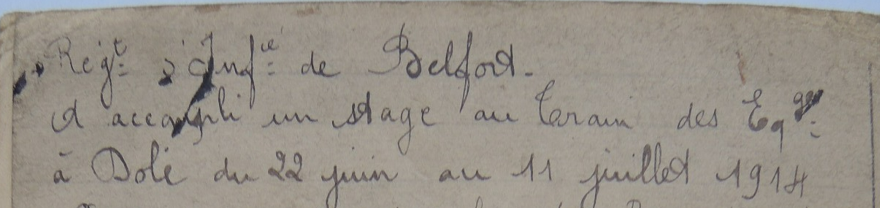 Régt d'Infie de Belfort.
A accompli un stage au Terrain des Eqges
à Dole du 22 juin au 11 juillet 1914